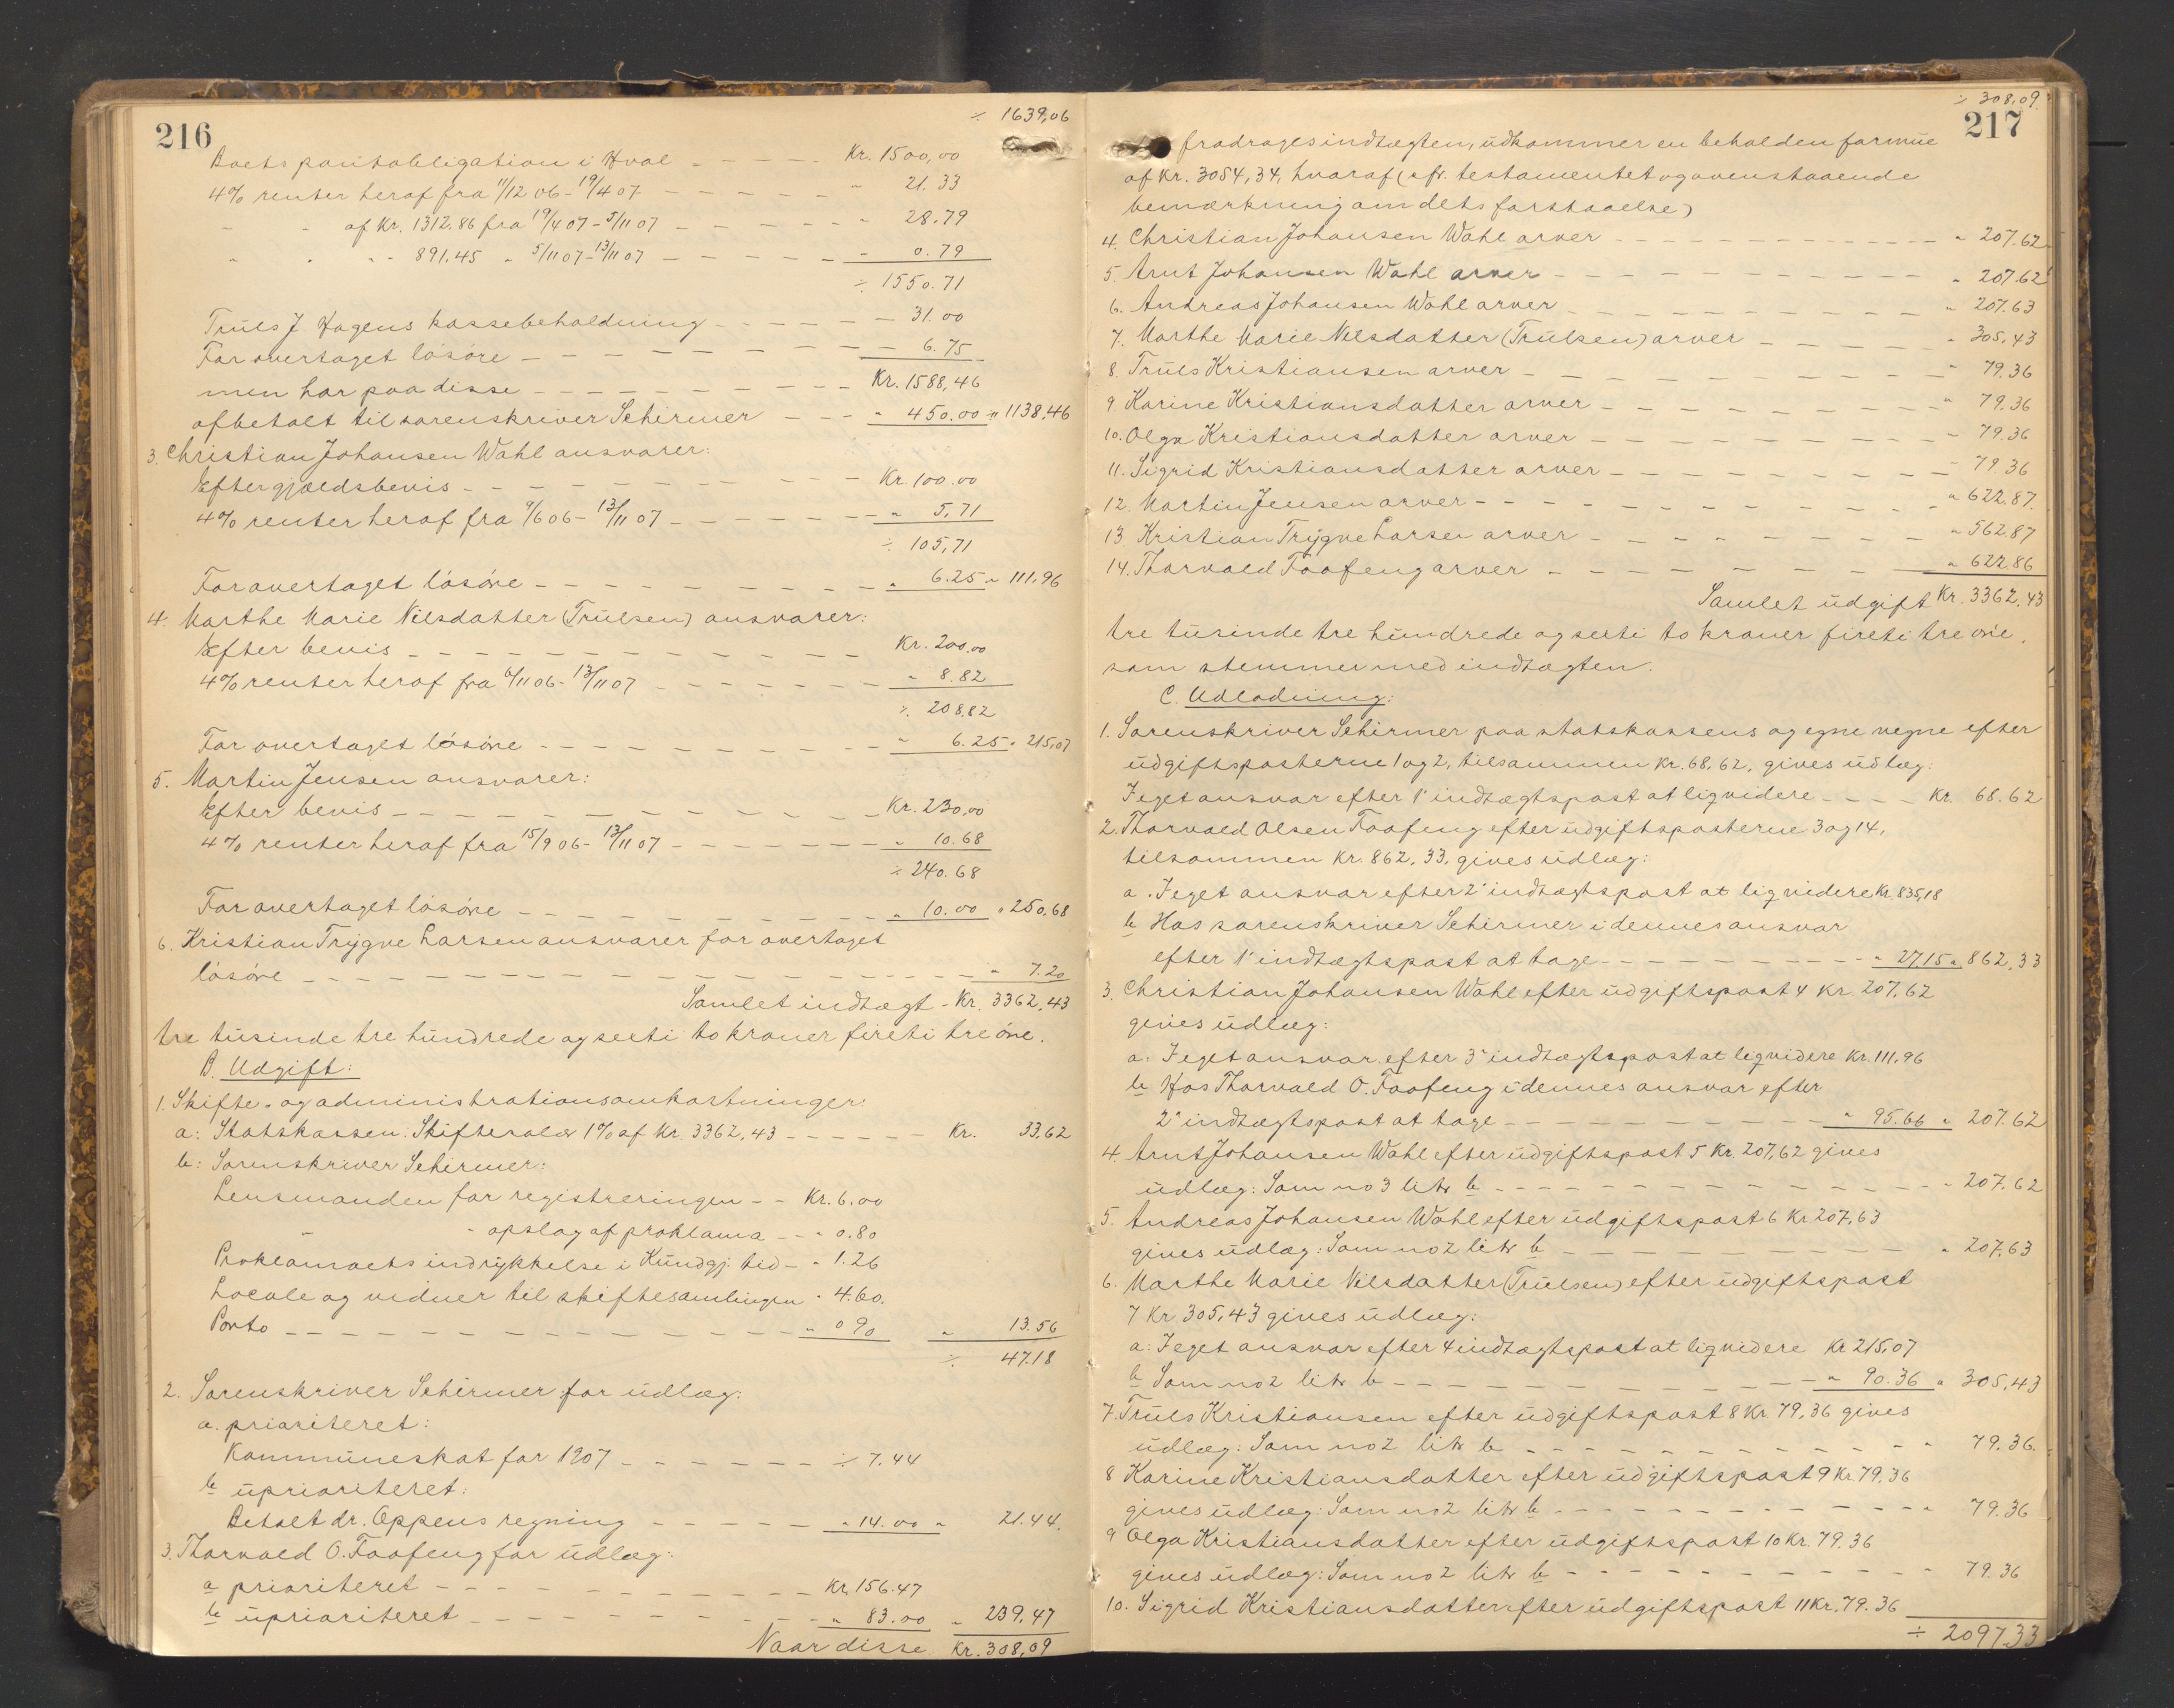 ÷ 1639,06
216
Boets pantobligation i Hval - - - - Kr. 1500,00
4% renter heraf fra 11/12 06 - 19/4 07 - - - - - " 21.33
" - af Kr. 1312.86 fra 19/4 07 - 5/11 07 - - - - - " 28.79
" " " - 891.45 " 5/11 07 - 13/11 07 - - - - - " 0.79
÷ 1550.71
Truls J. Hagens kassebeholdning - - - - - 31.00
For overtaget løsøre - - - - - - - - 6.75
Kr. 1588,46
men har paa disse - - - - - - -
afbetalt til sorenskriver Schirmer - - - " 450.00 " 1138,46
3. Christian Johansen Wahl ansvarer:
Efter gjældsbevis - - - - - - - - Kr. 100.00
4% renter heraf fra 9/6 06 - 13/11 07 - - - - - " 5,71
÷ 105,71
For overtaget løsøre - - - - - - - - " 6.25 " 111,96
4. Marthe Marie Nilsdatter (Trulsen) ansvarer:
Efter bevis - - - - - - - - - - Kr. 200.00
4% renter heraf fra 6/11 06 - 13/11 07 - - - - - " 8.82
÷ 208,82
For overtaget løsøre - - - - - - - - " 6.25 " 215,07
5. Martin Jensen ansvarer:
Efter bevis - - - - - - - - - - Kr. 230,00
4% renter heraf fra 15/9 06 - 13/11 07 - - - - - " 10.68
÷ 240.68
For overtaget løsøre - - - - - - - - " 10.00 " 250,68
6. Kristian Trygve Larsen ansvarer for overtaget
løsøre - - - - - - - - - - - - - " 7.20
Samlet indtægt - Kr. 3362,43
tre tusinde tre hundrede og sexti to kroner fireti tre øre.
B. Udgift:
1. Skifte- og administrationsomkostninger:
a: Statskassen: Skiftesalær 1% af Kr. 3362,43 - - - - - Kr. 33,62
b: Sorenskriver Schirmer:
Lensmanden for registreringen - - Kr. 6.00
" - opslag af proklama - - " 0.80
Proklamaets indrykkelse i Kundgj. tid - " 1.26
Locale og vidner til skiftesamlingen " 4.60.
Porto - - - - - - - - - - - " 0 90 " 13.56
÷ 47.18
2. Sorenskriver Schirmer for udlæg:
a. prioriteret:
Kommuneskat for 1907 - - - - - - ÷ 7.44
b uprioriteret:
Betalt dr. Oppens regning - - - - - " 14.00 " 21.44.
3. Thorvald O. Faafeng for udlæg:
a prioriteret - - - - - - - - - Kr. 156.47
b uprioriteret - - - - - - - - " 83.00 " 239.47
Naar disse Kr. 308,09
÷ 308,09.
217
fradrages indtægten, udkommer en beholden formue
af Kr. 3054,34, hvoraf (cfr. testamentet og ovenstaaende
bemærkning om dets forstaaelse)
4. Christian Johansen Wahl arver - - - - - - - - - " 207.62
5. Arnt Johansen Wahl arver - - - - - - - - - " 207.62
6. Andreas Johansen Wahl arver - - - - - - - - " 207.63
7. Marthe Marie Nilsdatter (Trulsen) arver - - - - - " 305,43
8. Truls Kristiansen arver - - - - - - - - - " 79.36
9. Karine Kristiansdatter arver - - - - - - - - " 79.36
10. Olga Kristiansdatter arver - - - - - - - - - 79.36
11. Sigrid Kristiansdatter arver - - - - - - - - 79.36
12. Martin Jensen arver - - - - - - - - - - " 622.87.
13. Kristian Trygve Larsen arver - - - - - - - " 562.87
14. Thorvald Faafeng arver - - - - - - - - " 622.86
Samlet udgift Kr. 3362,43
tre tusinde tre hundrede og sexti to kroner fireti tre øre,
som stemmer med indtægten.
C. Udlodning:
1. Sorenskriver Schirmer paa statskassens og egne vegne efter
udgiftsposterne 1 og 2, tilsammen Kr. 68,62, gives udlæg:
I eget ansvar efter 1' indtægtspost at liqvidere - - - Kr. 68.62
2. Thorvald Olsen Faafeng efter udgiftsposterne 3 og 14,
tilsammen Kr. 862,33, gives udlæg:
a. I eget ansvar efter 2' indtægtspost at liqvidere Kr. 835,18
b Hos sorenskriver Schirmer i dennes ansvar
efter 1' indtægtspost at tage - - - - - - - - " 27.15 " 862,33
3. Christian Johansen Wahl efter udgiftspost 4 Kr. 207,62
gives udlæg:
a: I eget ansvar efter 3' indtægtspost at liqvidere Kr. 111,96
b Hos Thorvald O. Faafeng i dennes ansvar efter
2' indtægtspost at tage - - - - - - - - - " 95.66 " 207.62
4. Arnt Johansen Wahl efter udgiftspost 5 Kr. 207,62 gives
udlæg: Som no 3 litr b - - - - - - - - - - - " 207.62
5. Andreas Johansen Wahl efter udgiftspost 6 Kr. 207,63
gives udlæg: Som no 2 litr b - - - - - - - - " 207,63
6. Marthe Marie Nilsdatter (Trulsen) efter udgiftspost
7 Kr 305,43 gives udlæg:
a: I eget ansvar efter 4 indtægtspost at liqvidere Kr 215,07
b Som no 2 litr b - - - - - - - - - - " 90.36 " 305,43
7. Truls Kristiansen efter udgiftspost 8 Kr 79,36 gives
udlæg: Som no 2 litr b - - - - - - - - - - 79.36.
8 Karine Kristiansdatter efter udgiftspost 9 Kr 79,36
gives udlæg: Som no 2 litr b - - - - - - - - " 79.36
9 Olga Kristiansdatter efter udgiftspost 10 Kr. 79.36
gives udlæg: Som no 2 litr b - - - - - - - - " 79.36
10. Sigrid Kristiansdatter efter udgiftspost 11 Kr. 79.36
÷ 2097.33